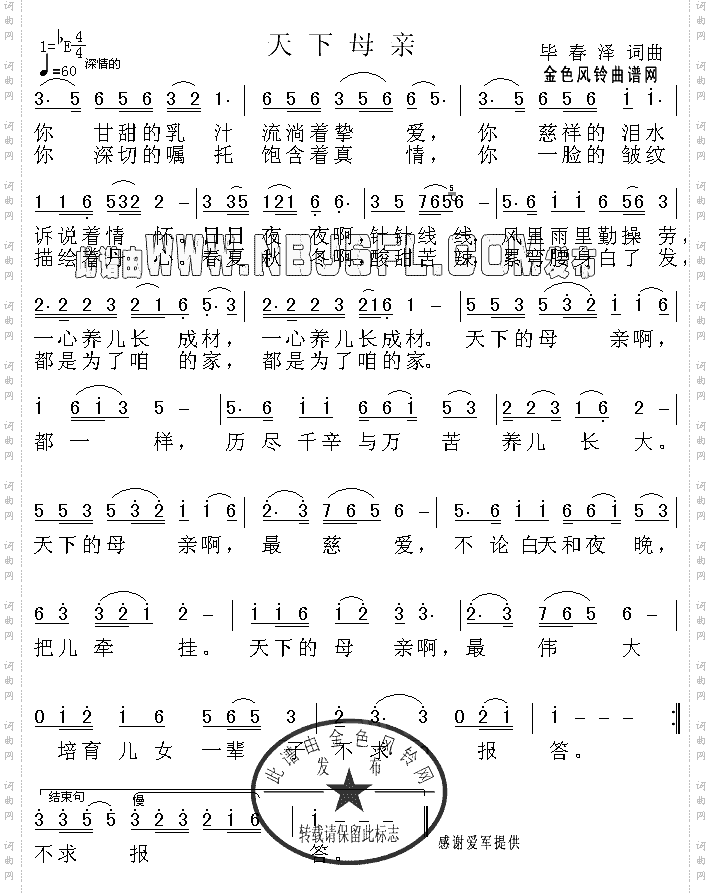 天下母亲
1=♭E4/4
♩=60 深情的
毕春泽 词曲
金色风铃曲谱网
3· 5 6 5 6 3 2 1· | 6 5 6 3 5 6 6 5· | 3· 5 6 5 6 i i· |
你 甘甜的乳 汁 流淌着挚 爱， 你 慈祥的 泪水
你 深切的嘱 托 饱含着真 情， 你 一脸的 皱纹
1 1 6 532 2 - | 3 35 121 6 6· | 3 5 7656 - | 5· 6 i i 56 3 |
诉说着情 怀。日日 夜 夜啊，针针线 线， 风里雨里勤操 劳，
描绘着丹 心。春夏 秋 冬啊，酸甜苦 辣， 累弯腰身白了 发，
此谱由WWW.NBJSFL.COM发布
2· 2 2 3 2 1 6 5· 3 | 2· 2 2 3 2 216 1 - | 5 5 3 5 3 2 i i 6 |
一心养儿长 成材， 一心养儿长成材。 天下的母 亲啊，
都是为了咱 的家， 都是为了咱的家。
i 6 i 3 5 - | 5· 6 i i 6 6 i 5 3 | 2 2 3 1 6 2 - |
都 一 样， 历 尽千辛与万 苦 养儿 长 大。
5 5 3 5 3 2 i i 6 | 2· 3 7 6 5 6 - | 5· 6 i i 6 6 i 6 5 |
天下的母 亲啊， 最 慈 爱， 不 论白天和夜 晚，
6 3 3 2 i 2 - | i i 6 i 3 2 2 | 2· 3 7 6 5 6 - |
把儿牵 挂。 天下的 母 亲啊，最 伟 大
0 i 2 i 6 | 5 6 5 3 | 2 3· 3 | 0 2 i | i - - - :||
培育 儿 女 一辈 子 不求 报 答。
结束句 慢
3 3 5 5 3 2 3 2 i 6 | i - - - ||
不求 报 答。
此谱由金色风铃网
发布
转载请保留此标志
感谢爱军提供
词曲网